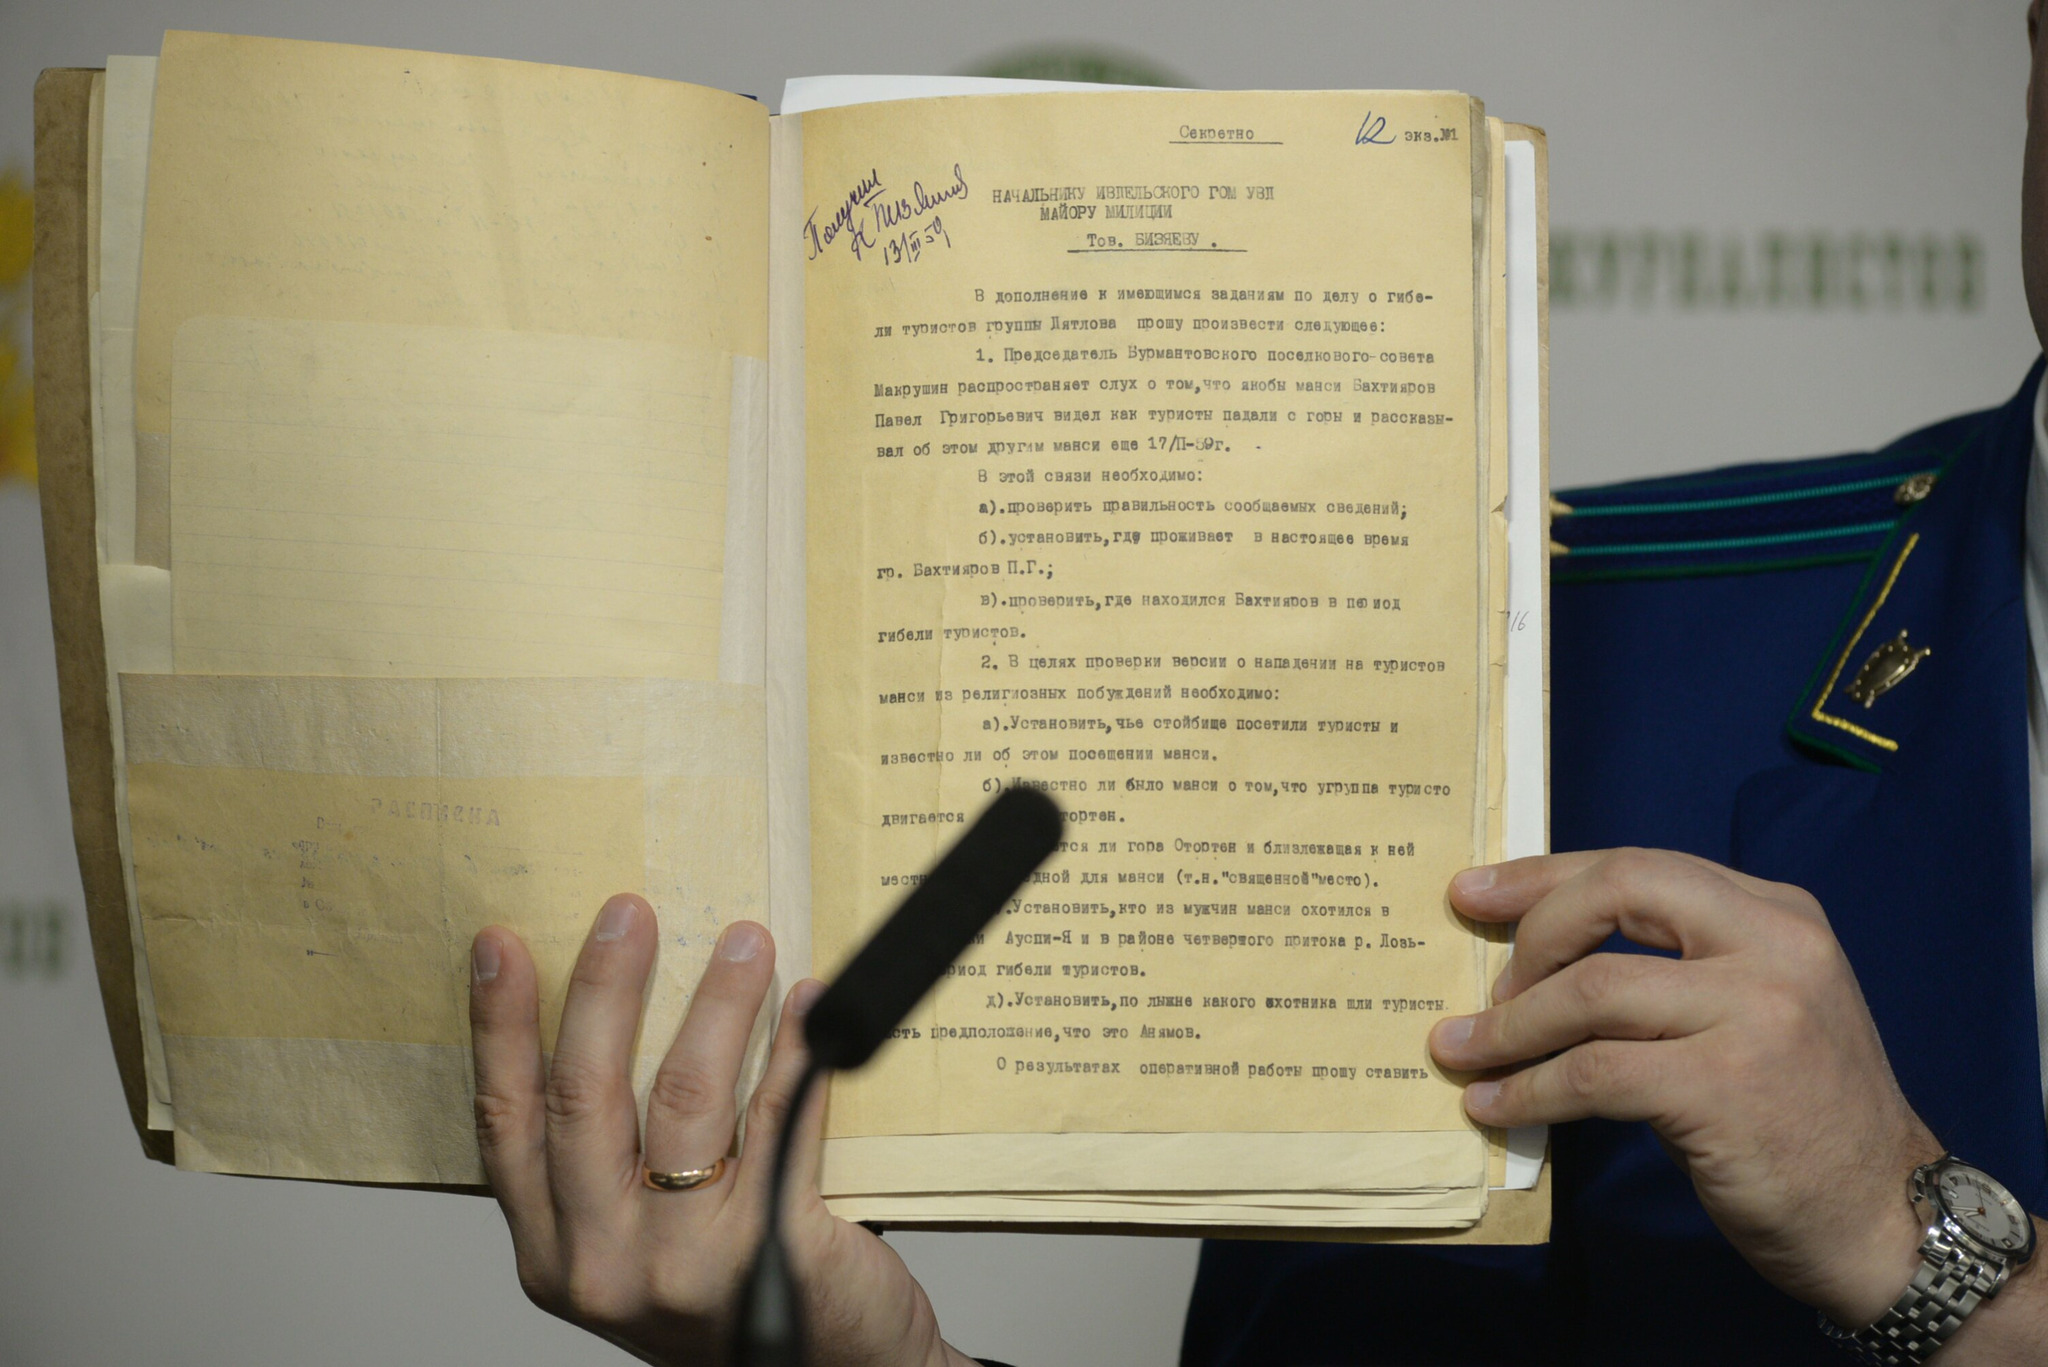 Секретно
12 экз.№1
Получил
13/III-59
НАЧАЛЬНИКУ ИВДЕЛЬСКОГО ГОМ УВД
МАЙОРУ МИЛИЦИИ
Тов. БИЗЯЕВУ .
В дополнение к имеющимся заданиям по делу о гибе-
ли туристов группы Дятлова прошу произвести следующее:
1. Председатель Бурмантовского поселкового-совета
Макрушин распространяет слух о том,что якобы манси Бахтияров
Павел Григорьевич видел как туристы падали с горы и рассказы-
вал об этом другим манси еще 17/П-59г.
В этой связи необходимо:
а).проверить правильность сообщаемых сведений;
б).установить,где проживает в настоящее время
гр. Бахтияров П.Г.;
в).проверить,где находился Бахтияров в период
гибели туристов.
2. В целях проверки версии о нападении на туристов
манси из религиозных побуждений необходимо:
а).Установить,чье стойбище посетили туристы и
известно ли об этом посещении манси.
б).Известно ли было манси о том,что угруппа туристо
двигается тортен.
ется ли гора Отортен и близлежащая к ней
местн дной для манси (т.н."священной"место).
.Установить,кто из мужчин манси охотился в
Ауспи-Я и в районе четвертого притока р. Лозь-
риод гибели туристов.
д).Установить,по лыжне какого охотника шли туристы.
сть предположение,что это Анямов.
О результатах оперативной работы прошу ставить
ЖУРНАЛИСТОВ
16